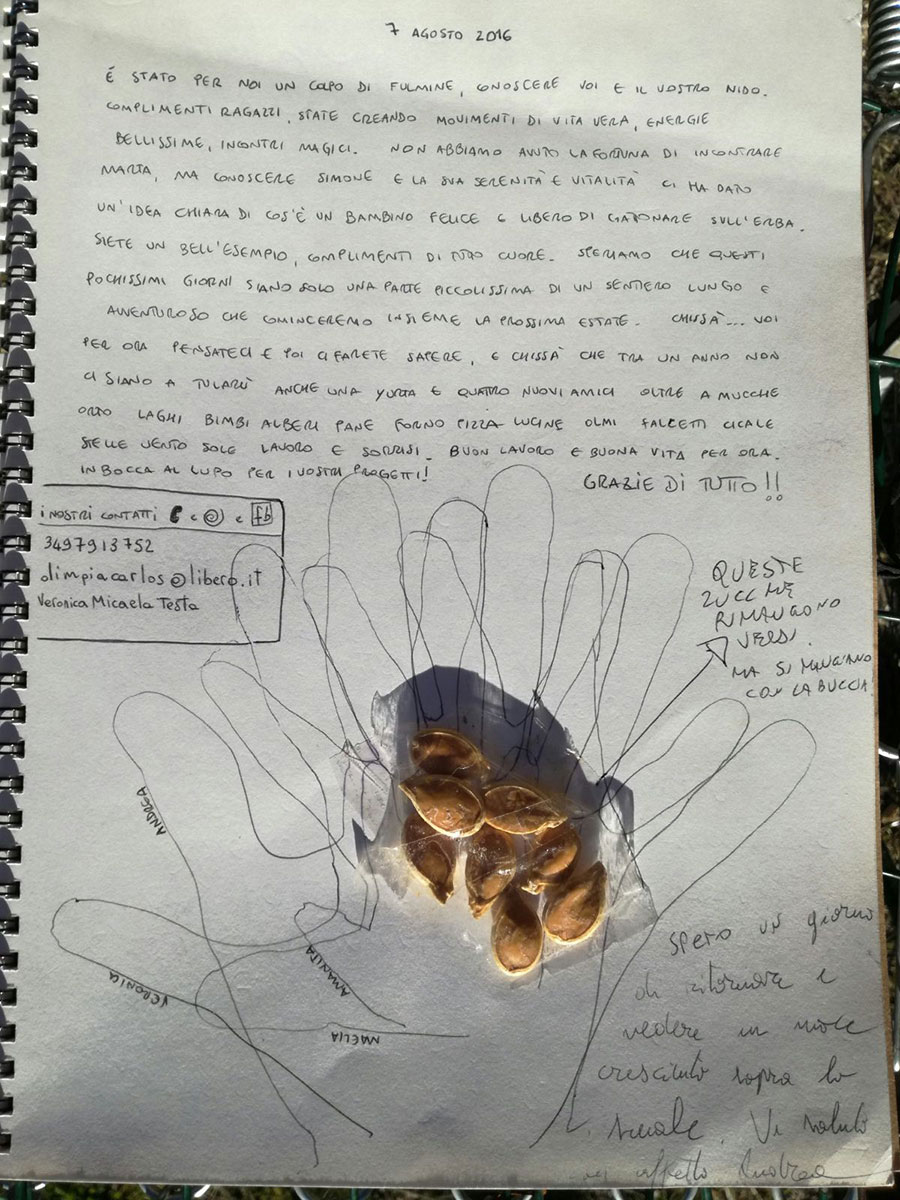 7 AGOSTO 2016
É STATO PER NOI UN COLPO DI FULMINE, CONOSCERE VOI E IL VOSTRO NIDO.
COMPLIMENTI RAGAZZI, STATE CREANDO MOVIMENTI DI VITA VERA, ENERGIE
BELLISSIME, INCONTRI MAGICI. NON ABBIAMO AVUTO LA FORTUNA DI INCONTRARE
MARTA, MA CONOSCERE SIMONE E LA SUA SERENITÀ E VITALITÀ CI HA DATO
UN'IDEA CHIARA DI COS'È UN BAMBINO FELICE E LIBERO DI GATONARE SULL'ERBA.
SIETE UN BELL'ESEMPIO, COMPLIMENTI DI TUTTO CUORE. SPERIAMO CHE QUESTI
POCHISSIMI GIORNI SIANO SOLO UNA PARTE PICCOLISSIMA DI UN SENTIERO LUNGO E
AVVENTUROSO CHE COMINCEREMO INSIEME LA PROSSIMA ESTATE. CHISSÀ... VOI
PER ORA PENSATECI E POI CI FARETE SAPERE, E CHISSÀ CHE TRA UN ANNO NON
CI SIANO A TULARÙ ANCHE UNA YURTA E QUATTRO NUOVI AMICI OLTRE A MUCCHE
ORTO LAGHI BIMBI ALBERI PANE FORNO PIZZA LUCINE OLMI FALCETTI CICALE
STELLE VENTO SOLE LAVORO E SORRISI. BUON LAVORO E BUONA VITA PER ORA.
IN BOCCA AL LUPO PER I VOSTRI PROGETTI!
GRAZIE DI TUTTO!!
i NOSTRI CONTATTI e @ e fb
3497913752
olimpiacarlos@libero.it
Veronica Micaela Testa
QUESTE
ZUCCHE
RIMANGONO
VERDI.
MA SI MANGIANO
CON LA BUCCIA!
ANDREA
VERONICA
AMANITA
MAELIA
spero un giorno
di ritornare e
vedere un noce
cresciuto sopra lo
Vi saluto
affetto Andrea